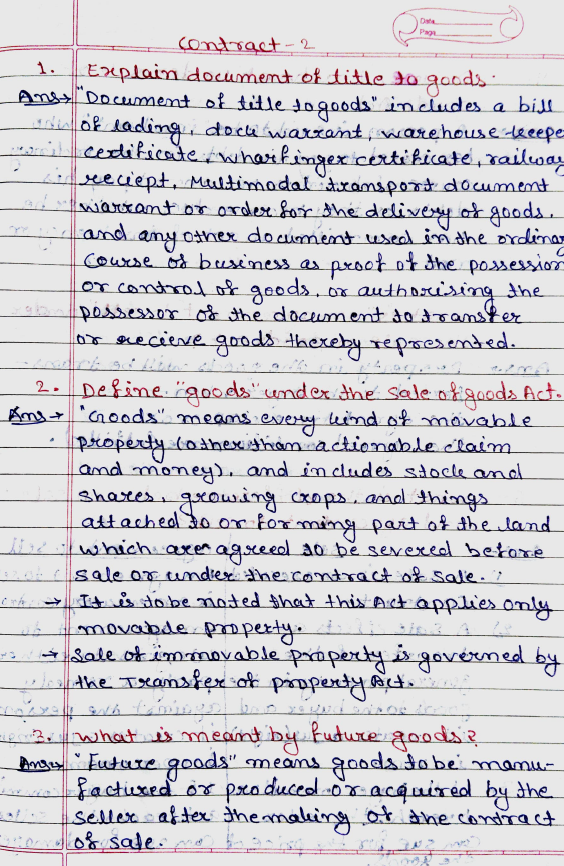 Date
Page
Contract - 2
1. Explain document of title to goods.
Ans → "Document of title to goods" includes a bill
of lading, dock warrant, warehouse-keepe
certificate, wharfinger certificate, railway
reciept, Multimodal transport document
warrant or order for the delivery of goods.
and any other document used in the ordinar
course of business as proof of the possession
or control of goods, or authorising the
possessor of the document to transfer
or recieve goods thereby represented.
2. Define "goods" under the Sale of goods Act.
Ans → "Goods" means every kind of movable
property (other than actionable claim
and money), and includes stock and
shares, growing crops, and things
attached to or forming part of the land
which are agreed to be severed before
sale or under the contract of sale.
→ It is to be noted that this Act applies only
movable property.
→ Sale of immovable property is governed by
the Transfer of property Act.
3. What is meant by future goods?
Ans → "Future goods" means goods to be manu-
factured or produced or acquired by the
seller after the making of the contract
of sale.